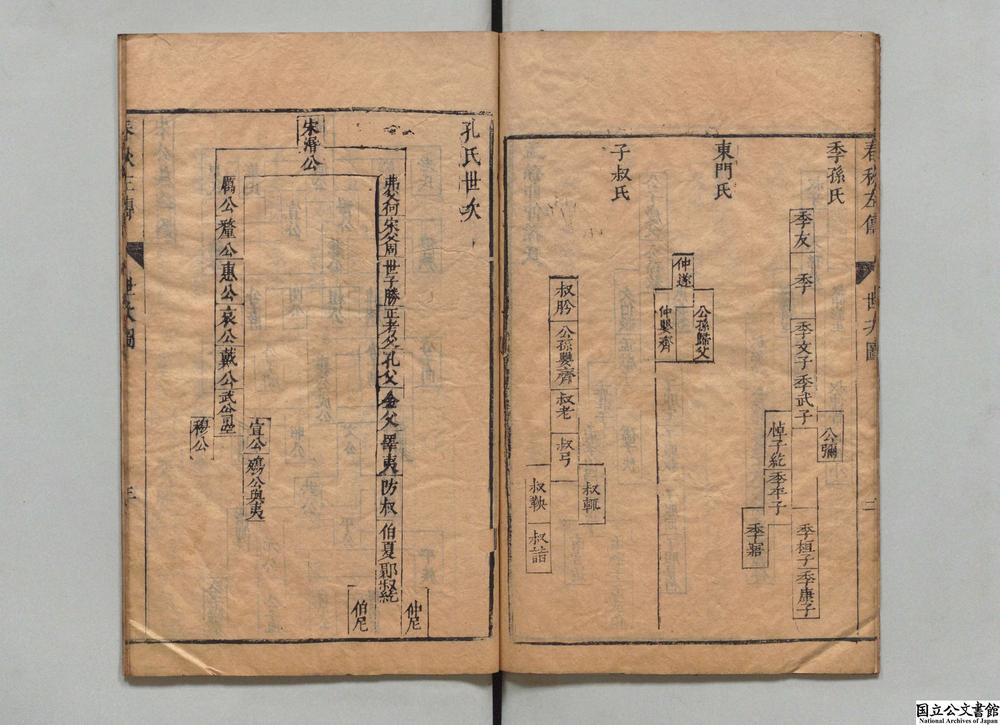 春秋左傳
世次圖
三
季孫氏
季友
季
季文子
季武子
公彌
悼子紇
季平子
季桓子
季康子
季寤
東門氏
仲遂
公孫歸父
仲嬰齊
子叔氏
叔肸
公孫嬰齊
叔老
叔弓
叔輒
叔鞅
叔詣
孔氏世次
宋湣公
弗父何
宋父周
世子勝
正考父
孔父
金父
睪夷
防叔
伯夏
郰叔紇
仲尼
伯尼
厲公
釐公
惠公
哀公
戴公
武公司空
宣公
殤公與夷
穆公
世次圖
国立公文書館
National Archives of Japan